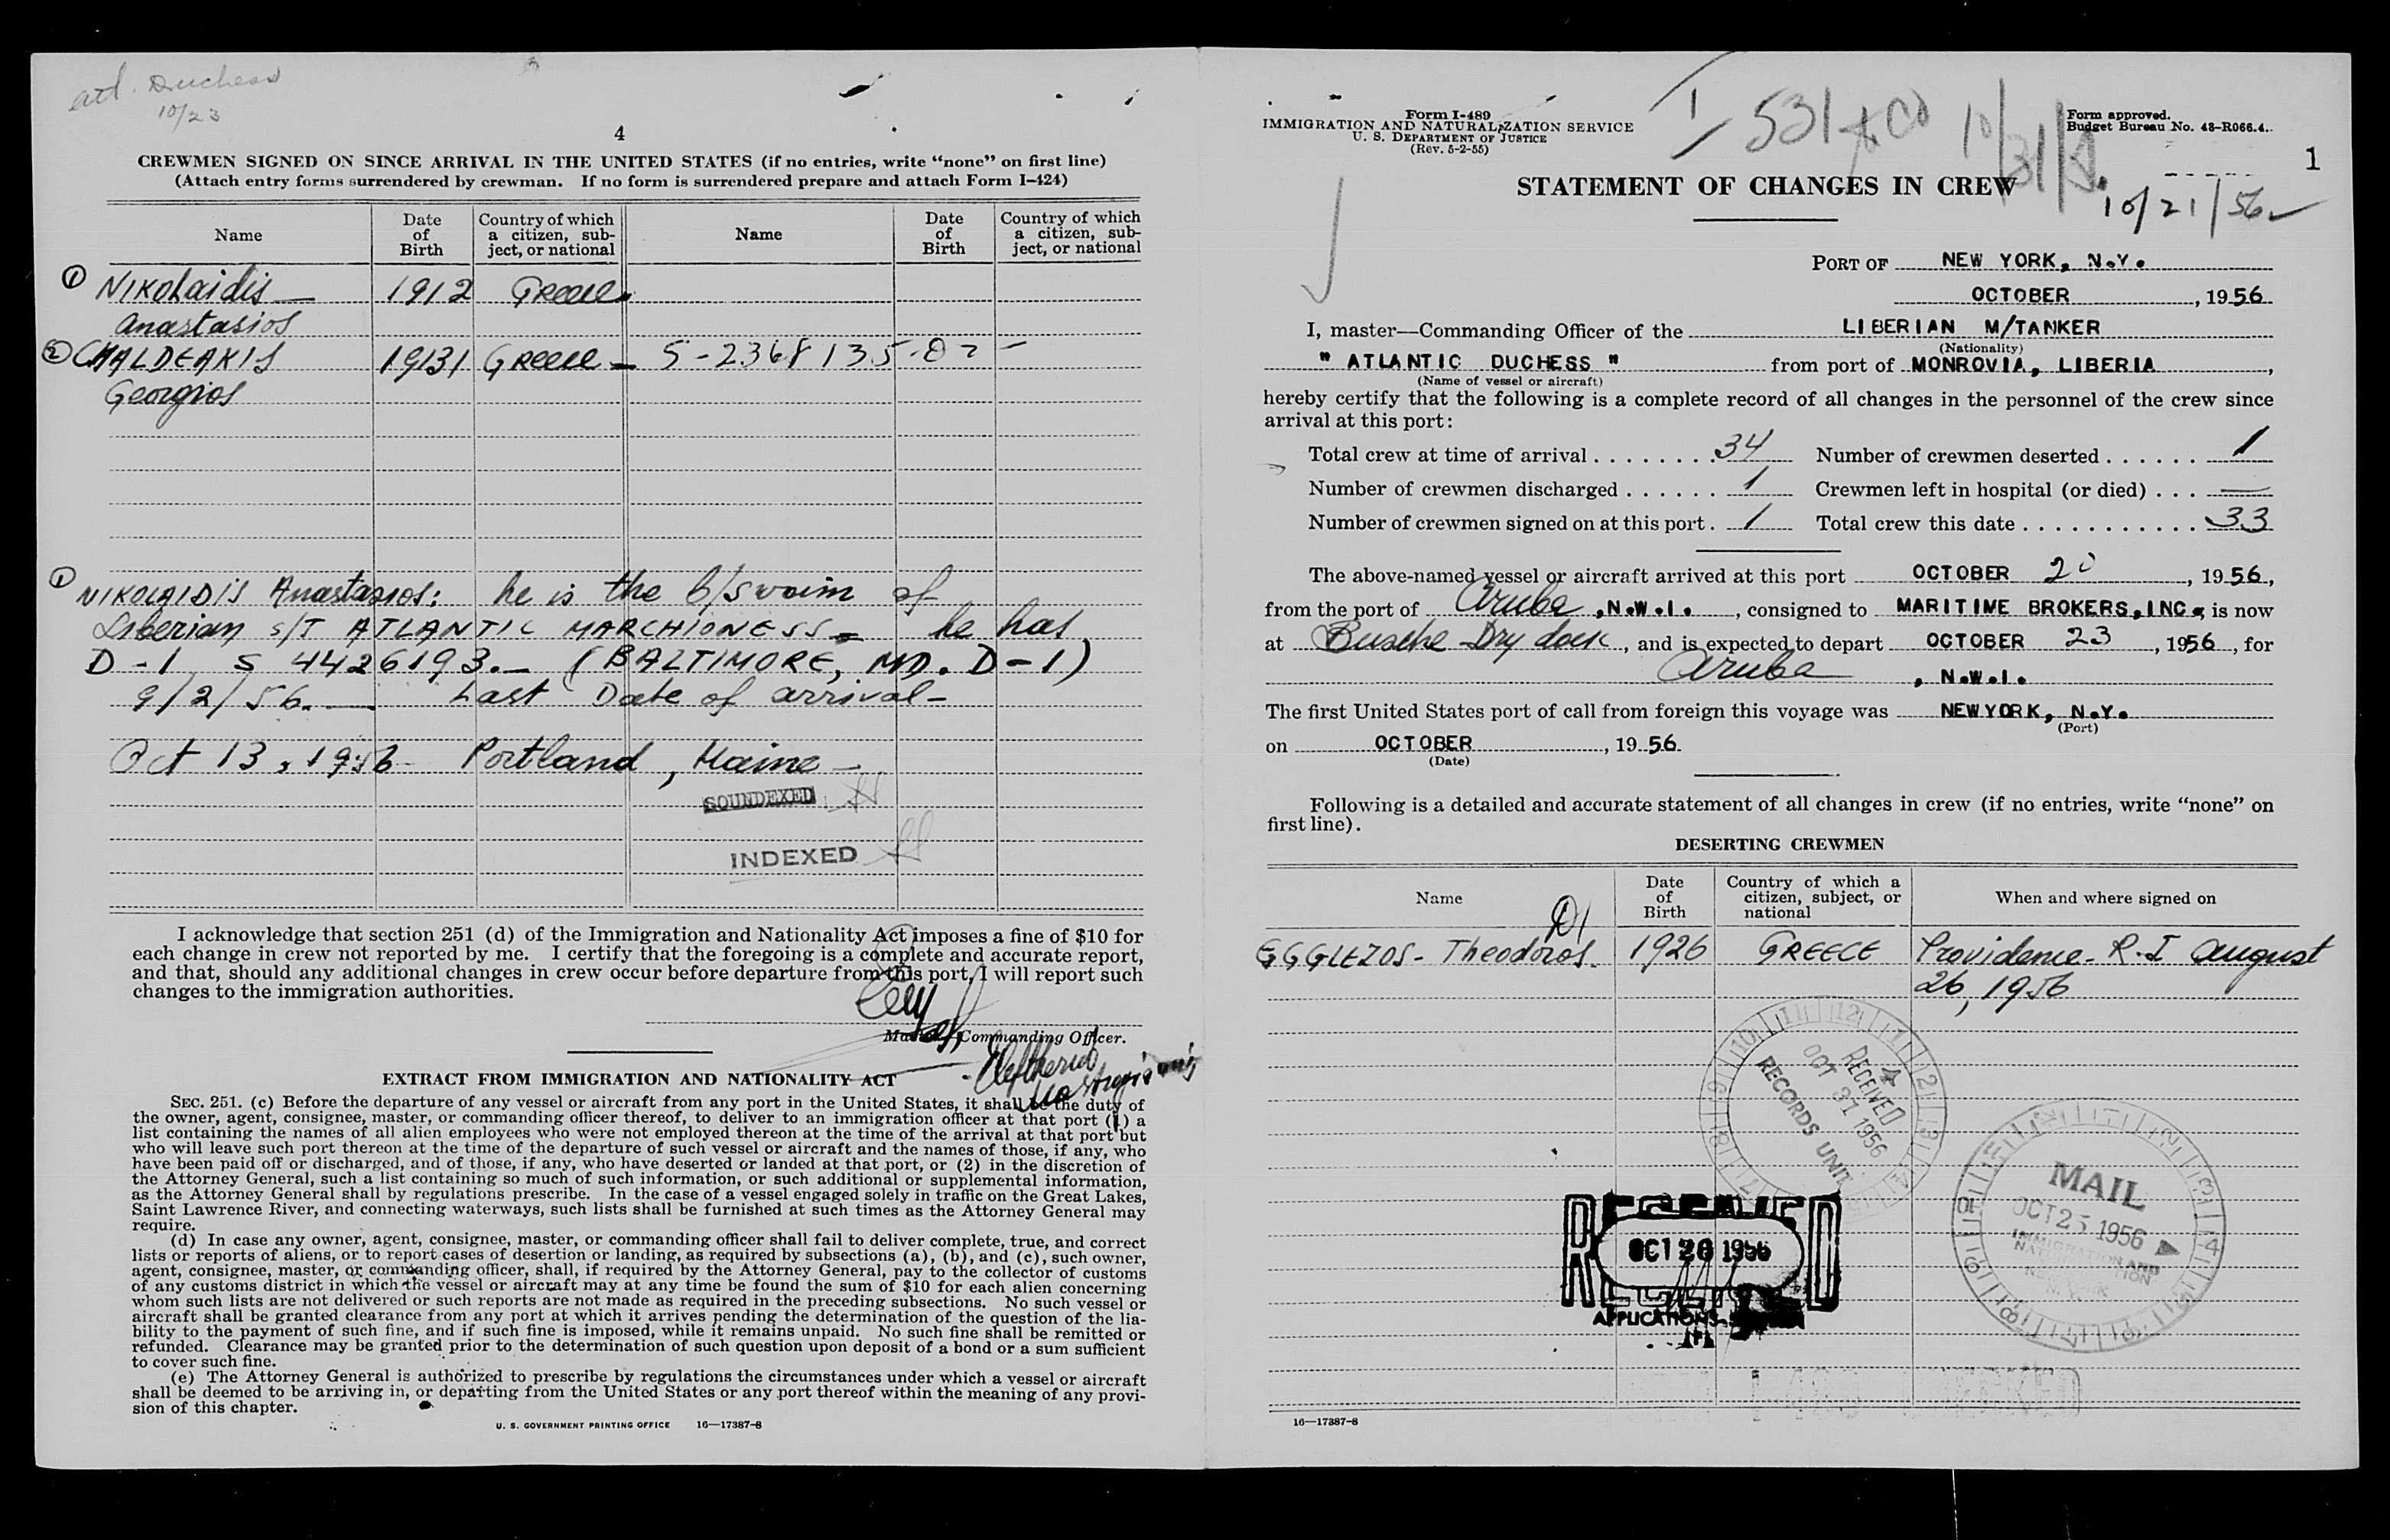 Atl. Duchess
10/23
4
CREWMEN SIGNED ON SINCE ARRIVAL IN THE UNITED STATES (if no entries, write “none” on first line)
(Attach entry forms surrendered by crewman. If no form is surrendered prepare and attach Form I-424)
Name Date of Birth Country of which a citizen, subject, or national Name Date of Birth Country of which a citizen, subject, or national
① NIKOLaidis — 1912 Greece
Anastasios
② CHALDEAKIS 1931 Greece — 5-2368135-D2 —
Georgios
① NIKOLAIDIS Anastasios: he is the b/swaim of
Liberian S/T ATLANTIC MARCHIONESS — he has
D-1 S 4426193.— (BALTIMORE, MD. D-1)
9/2/56. — Last Date of arrival —
Oct 13, 1956 — Portland, Maine —
SOUNDEXED
INDEXED
I acknowledge that section 251 (d) of the Immigration and Nationality Act imposes a fine of $10 for
each change in crew not reported by me. I certify that the foregoing is a complete and accurate report,
and that, should any additional changes in crew occur before departure from this port, I will report such
changes to the immigration authorities.
Commanding Officer.
EXTRACT FROM IMMIGRATION AND NATIONALITY ACT
SEC. 251. (c) Before the departure of any vessel or aircraft from any port in the United States, it shall be the duty of
the owner, agent, consignee, master, or commanding officer thereof, to deliver to an immigration officer at that port (1) a
list containing the names of all alien employees who were not employed thereon at the time of the arrival at that port but
who will leave such port thereon at the time of the departure of such vessel or aircraft and the names of those, if any, who
have been paid off or discharged, and of those, if any, who have deserted or landed at that port, or (2) in the discretion of
the Attorney General, such a list containing so much of such information, or such additional or supplemental information,
as the Attorney General shall by regulations prescribe. In the case of a vessel engaged solely in traffic on the Great Lakes,
Saint Lawrence River, and connecting waterways, such lists shall be furnished at such times as the Attorney General may
require.
(d) In case any owner, agent, consignee, master, or commanding officer shall fail to deliver complete, true, and correct
lists or reports of aliens, or to report cases of desertion or landing, as required by subsections (a), (b), and (c), such owner,
agent, consignee, master, or commanding officer, shall, if required by the Attorney General, pay to the collector of customs
of any customs district in which the vessel or aircraft may at any time be found the sum of $10 for each alien concerning
whom such lists are not delivered or such reports are not made as required in the preceding subsections. No such vessel or
aircraft shall be granted clearance from any port at which it arrives pending the determination of the question of the lia-
bility to the payment of such fine, and if such fine is imposed, while it remains unpaid. No such fine shall be remitted or
refunded. Clearance may be granted prior to the determination of such question upon deposit of a bond or a sum sufficient
to cover such fine.
(e) The Attorney General is authorized to prescribe by regulations the circumstances under which a vessel or aircraft
shall be deemed to be arriving in, or departing from the United States or any port thereof within the meaning of any provi-
sion of this chapter.
U. S. GOVERNMENT PRINTING OFFICE 16—17387-8
Form I-489
IMMIGRATION AND NATURALIZATION SERVICE
U. S. DEPARTMENT OF JUSTICE
(Rev. 5-2-55)
I-531
Form approved.
Budget Bureau No. 43-R066.4.
1
STATEMENT OF CHANGES IN CREW
10/21/56
PORT OF NEW YORK, N.Y.
OCTOBER, 1956
I, master—Commanding Officer of the LIBERIAN M/TANKER
(Nationality)
" ATLANTIC DUCHESS " from port of MONROVIA, LIBERIA,
(Name of vessel or aircraft)
hereby certify that the following is a complete record of all changes in the personnel of the crew since
arrival at this port:
Total crew at time of arrival . . . . . . . . 34 Number of crewmen deserted . . . . . . 1
Number of crewmen discharged . . . . . . 1 Crewmen left in hospital (or died) . . . —
Number of crewmen signed on at this port . 1 Total crew this date . . . . . . . . . . . 33
The above-named vessel or aircraft arrived at this port OCTOBER 20, 1956,
from the port of Aruba, N.W.I., consigned to MARITIME BROKERS, INC., is now
at Busche Dry dock, and is expected to depart OCTOBER 23, 1956, for
Aruba, N.W.I.
The first United States port of call from foreign this voyage was NEW YORK, N.Y.
(Port)
on OCTOBER, 1956
(Date)
Following is a detailed and accurate statement of all changes in crew (if no entries, write “none” on
first line).
DESERTING CREWMEN
Name Date of Birth Country of which a citizen, subject, or national When and where signed on
D1
EGGLEZOS - Theodoros. 1926 GREECE Providence - R.I August
26, 1956
RECEIVED
OCT 31 1956
RECORDS UNIT
MAIL
OCT 25 1956
IMMIGRATION AND
RECEIVED
OCT 26 1956
APPLICATIONS
16—17387-8